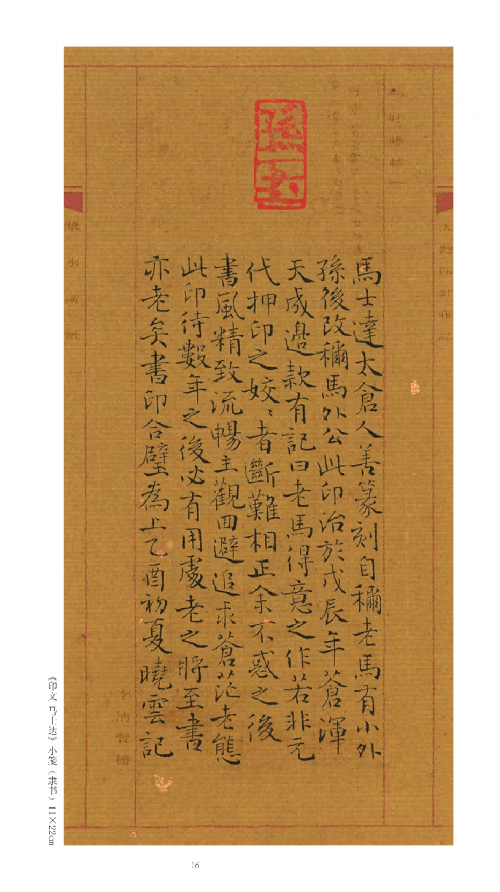 馬士達太倉人善篆刻自稱老馬有小外
孫後改稱馬外公此印治於戊辰年蒼渾
天成邊款有記曰老馬得意之作若非元
代押印之姣姣者斷難相正余不惑之後
書風精致流暢主觀回避追求蒼茫老態
此印待數年之後必有用處老之將至書
亦老矣書印合璧為上乙酉初夏曉雲記
《印文 马士达》小笺（隶书）11×22cm
16